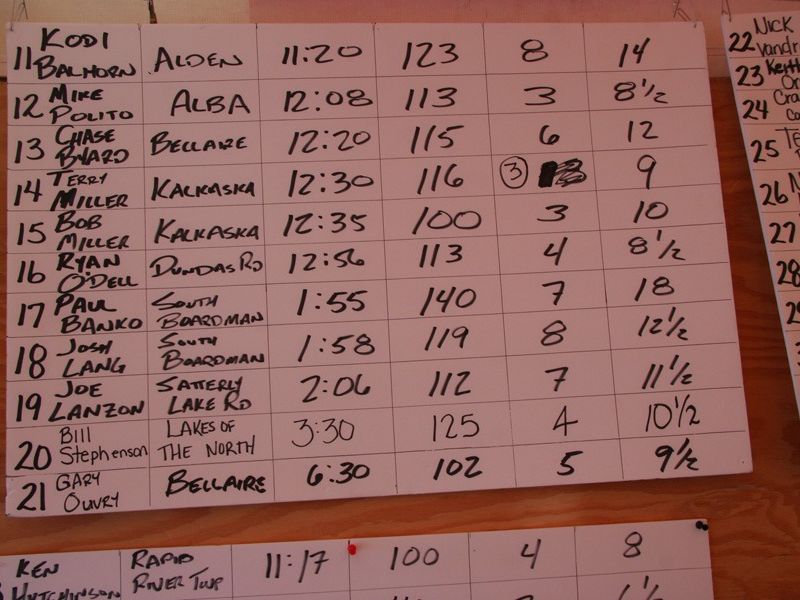 11 KODI BALHORN ALDEN 11:20 123 8 14
12 MIKE POLITO ALBA 12:08 113 3 8 1/2
13 CHASE BYARD BELLAIRE 12:20 115 6 12
14 TERRY MILLER KALKASKA 12:30 116 3 9
15 BOB MILLER KALKASKA 12:35 100 3 10
16 RYAN O'DELL DUNDAS RD 12:56 113 4 8 1/2
17 PAUL BANKO SOUTH BOARDMAN 1:55 140 7 18
18 JOSH LANG SOUTH BOARDMAN 1:58 119 8 12 1/2
19 JOE LANZON SATTERLY LAKE RD 2:06 112 7 11 1/2
20 Bill Stephenson LAKES OF THE NORTH 3:30 125 4 10 1/2
21 GARY OUVRY BELLAIRE 6:30 102 5 9 1/2
KEN HUTCHINSON RAPID RIVER TWP 11:17 100 4 8
22 NICK
23
24
25
26
27
28